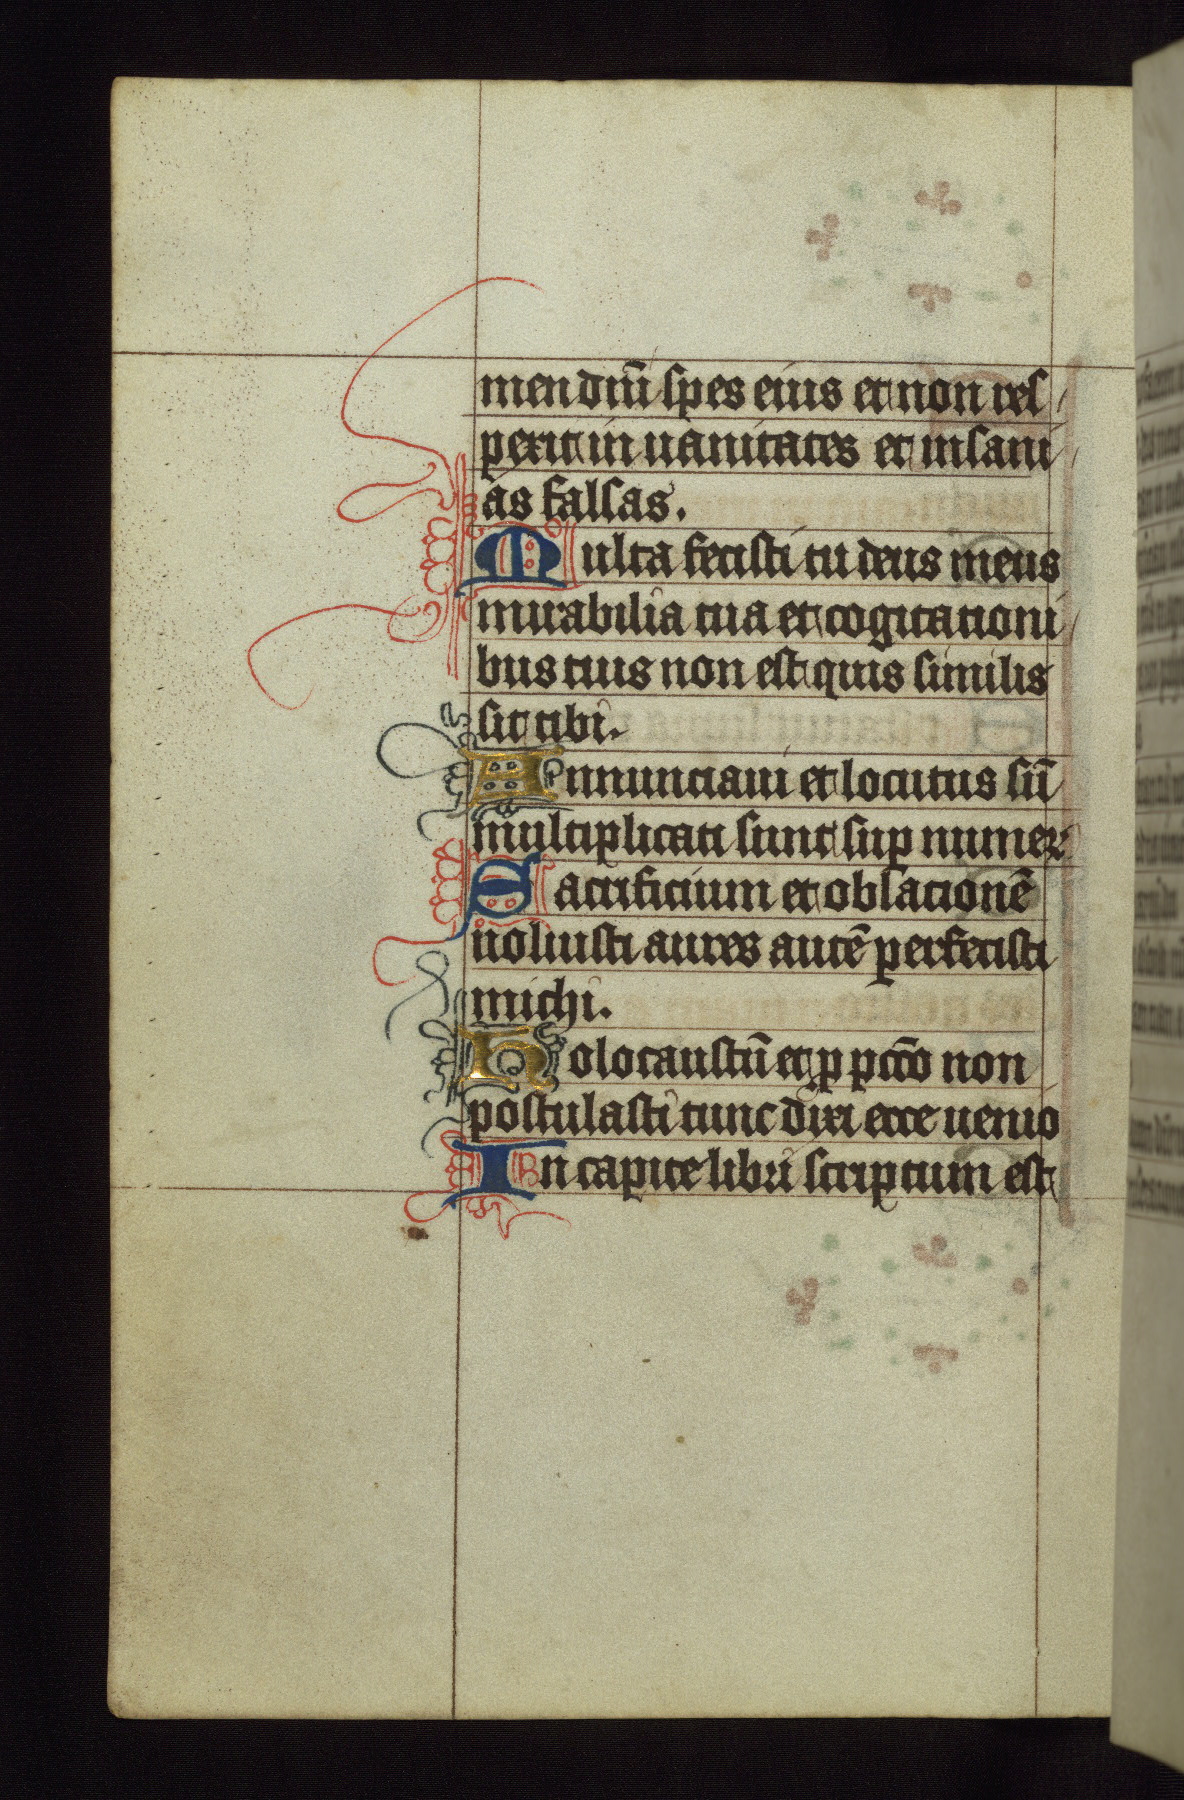 men dn̄i spes eius et non res
pexit in uanitates et insani
as falsas.
Multa fecisti tu deus meus
mirabilia tua et cogitationi
bus tuis non est quis similis
sit tibi.
Annunciaui et locutus sū
multiplicati sunt sup numeꝝ
Sacrificium et oblacionē
noluisti aures autē perfecisti
michi.
Holocaustū et p pccō non
postulasti tunc dixi ecce uenio
In capite libri scriptum est